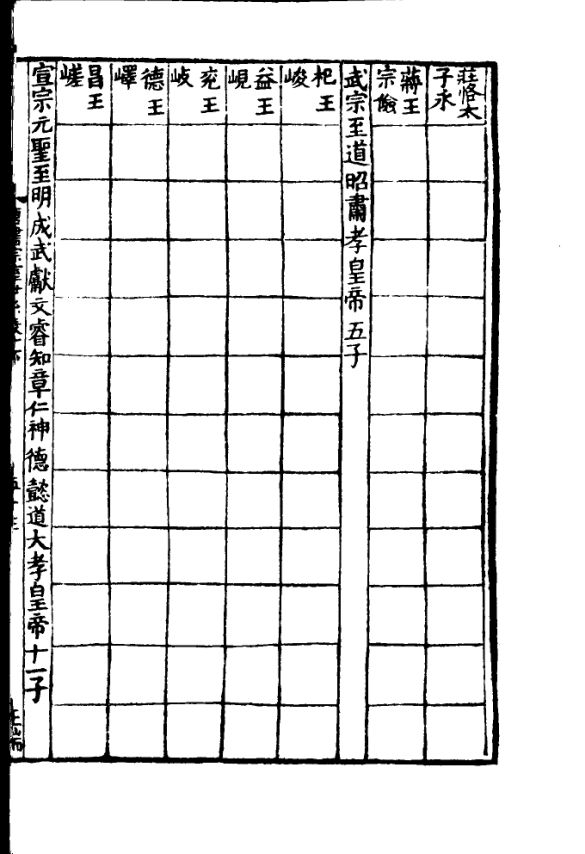 莊恪太
子永
蔣王
宗儉
武宗至道昭肅孝皇帝五子
杞王
峻
益王
峴
兖王
岐
德王
嶧
昌王
嵯
宣宗元聖至明成武獻文睿知章仁神德懿道大孝皇帝十一子